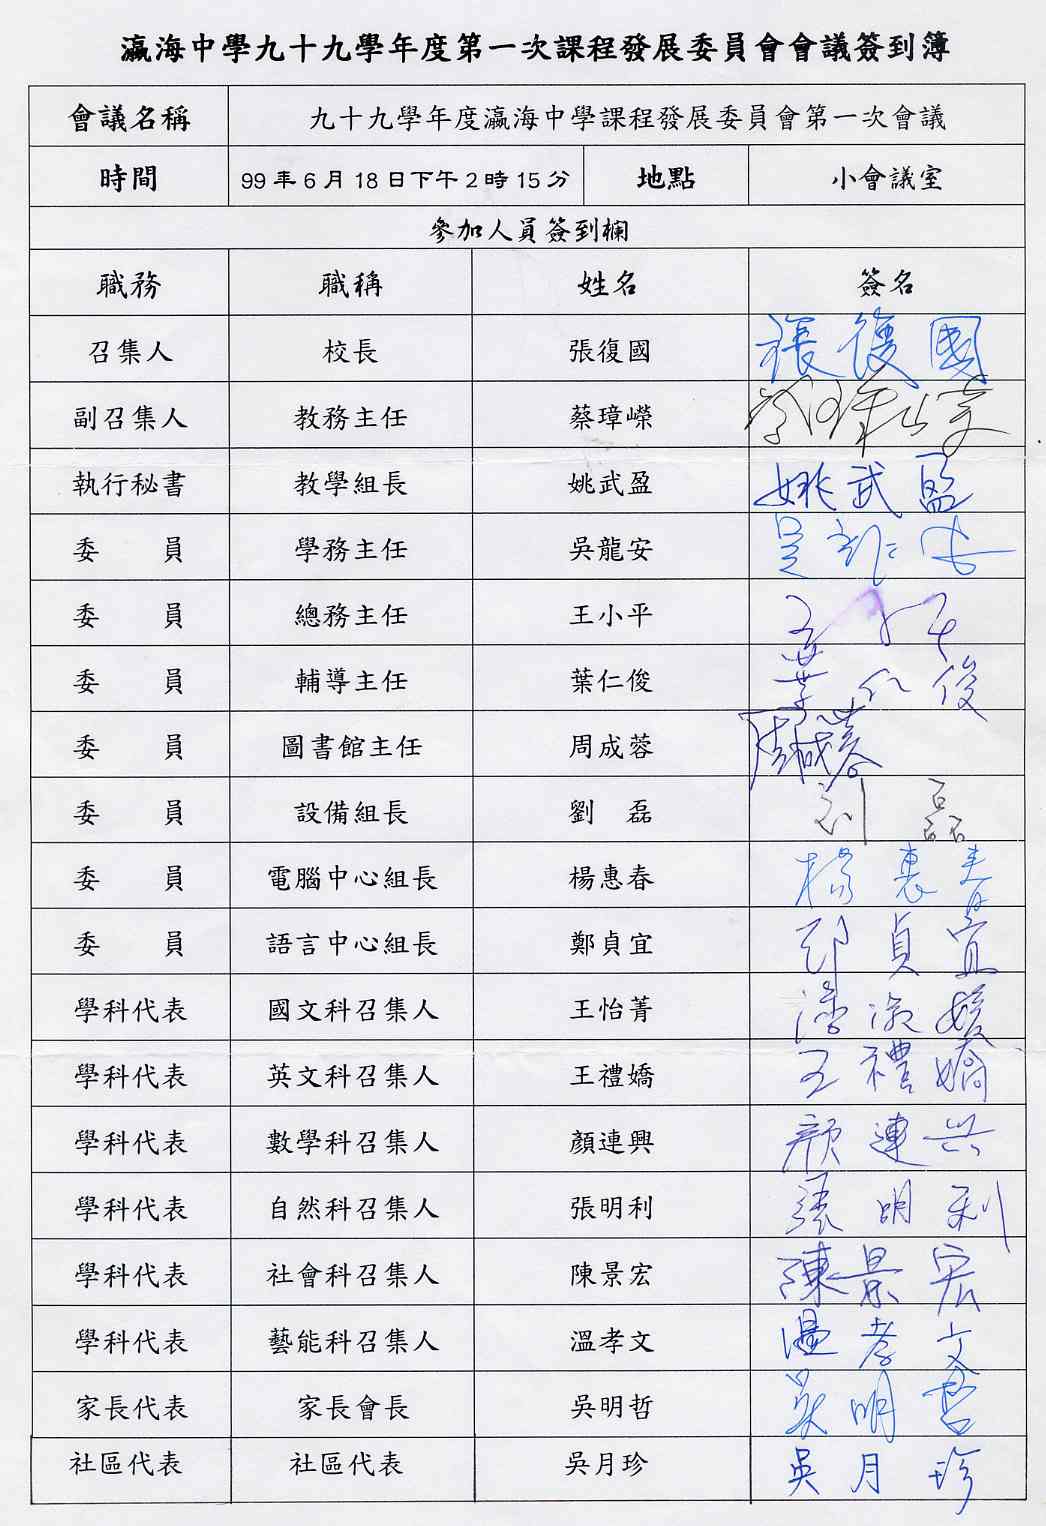 瀛海中學九十九學年度第一次課程發展委員會會議簽到簿
會議名稱 九十九學年度瀛海中學課程發展委員會第一次會議
時間 99年6月18日下午2時15分 地點 小會議室
參加人員簽到欄
職務 職稱 姓名 簽名
召集人 校長 張復國 張復國
副召集人 教務主任 蔡璋嶸
執行秘書 教學組長 姚武盈 姚武盈
委員 學務主任 吳龍安 吳龍安
委員 總務主任 王小平 王小平
委員 輔導主任 葉仁俊 葉仁俊
委員 圖書館主任 周成蓉 周成蓉
委員 設備組長 劉磊 刘磊
委員 電腦中心組長 楊惠春 楊惠春
委員 語言中心組長 鄭貞宜 鄭貞宜
學科代表 國文科召集人 王怡菁
學科代表 英文科召集人 王禮嬌 王禮嬌
學科代表 數學科召集人 顏連興 顏連兴
學科代表 自然科召集人 張明利 張明利
學科代表 社會科召集人 陳景宏 陳景宏
學科代表 藝能科召集人 溫孝文 溫孝文
家長代表 家長會長 吳明哲 吳明哲
社區代表 社區代表 吳月珍 吳月珍